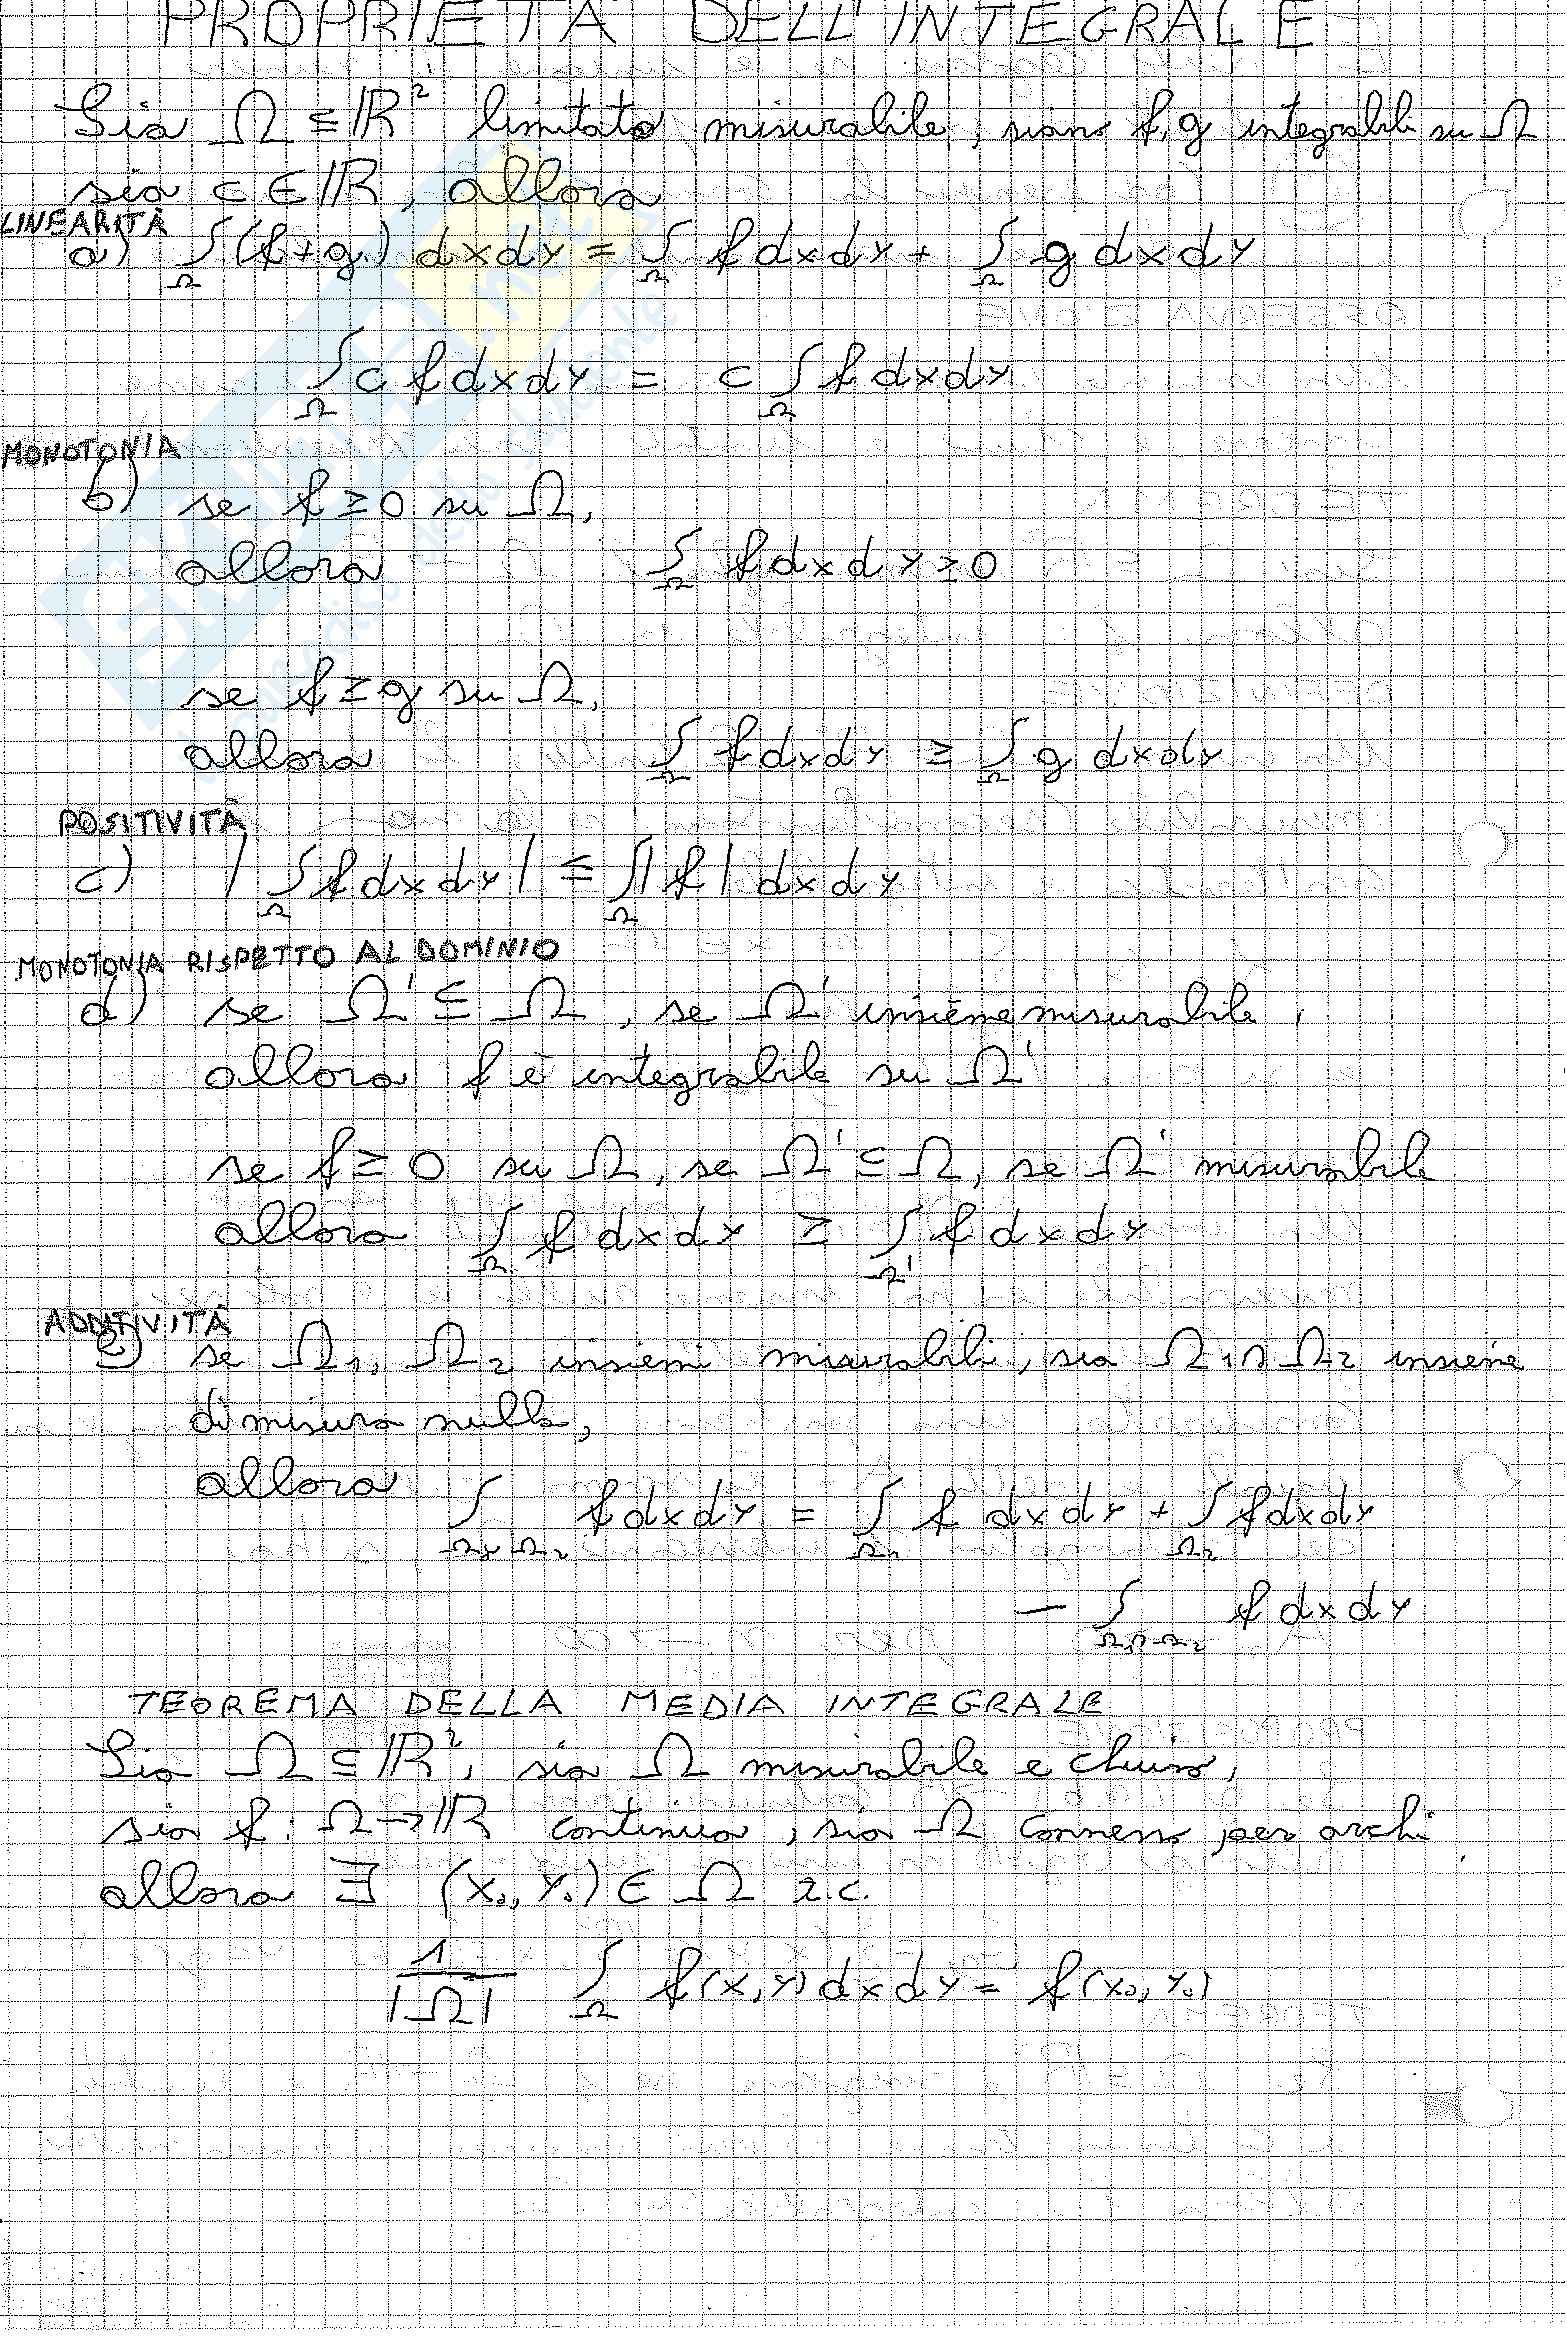 PROPRIETÀ DELL'INTEGRALE
Sia Ω ⊆ ℝ² limitato misurabile, siano f,g integrabili su Ω
sia c ∈ ℝ, allora
LINEARITÀ
a) ∫_Ω (f+g) dxdy = ∫_Ω f dxdy + ∫_Ω g dxdy
∫_Ω c f dxdy = c ∫_Ω f dxdy
MONOTONIA
b) se f ≥ 0 su Ω,
allora ∫_Ω f dxdy ≥ 0
se f ≥ g su Ω,
allora ∫_Ω f dxdy ≥ ∫_Ω g dxdy
POSITIVITÀ
c) |∫_Ω f dxdy| ≤ ∫_Ω |f| dxdy
MONOTONIA RISPETTO AL DOMINIO
d) se Ω' ⊆ Ω, se Ω' insieme misurabile,
allora f è integrabile su Ω'
se f ≥ 0 su Ω, se Ω' ⊆ Ω, se Ω' misurabile
allora ∫_Ω f dxdy ≥ ∫_Ω' f dxdy
ADDITIVITÀ
e) se Ω₁, Ω₂ insiemi misurabili, sia Ω₁ ∩ Ω₂ insieme
di misura nulla,
allora ∫_Ω₁∪Ω₂ f dxdy = ∫_Ω₁ f dxdy + ∫_Ω₂ f dxdy
− ∫_Ω₁∩Ω₂ f dxdy
TEOREMA DELLA MEDIA INTEGRALE
Sia Ω ⊆ ℝ², sia Ω misurabile e chiuso,
sia f: Ω → ℝ continua, sia Ω connesso per archi
allora ∃ (x₀, y₀) ∈ Ω t.c.
1/|Ω| ∫_Ω f(x,y) dxdy = f(x₀, y₀)